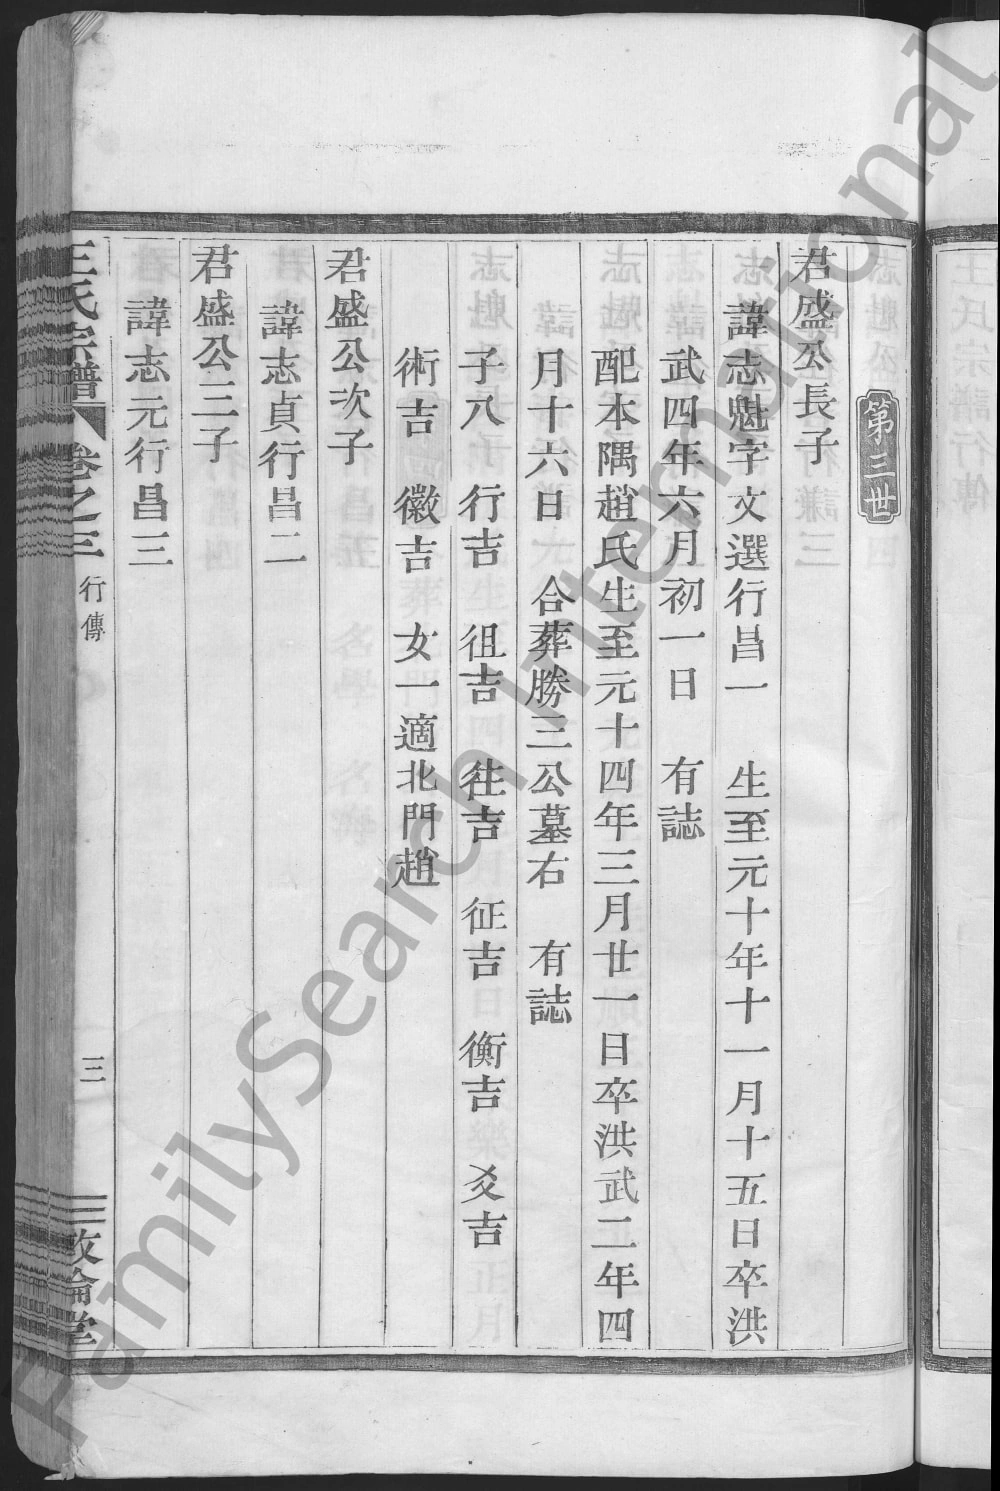 第三世
君盛公長子
諱志魁字文選行昌一 生至元十年十一月十五日卒洪
武四年六月初一日 有誌
配本隅趙氏生至元十四年三月廿一日卒洪武二年四
月十六日 合葬勝三公墓右 有誌
子八 行吉 徂吉 往吉 征吉 衡吉 爻吉
術吉 徽吉 女一適北門趙
君盛公次子
諱志貞行昌二
君盛公三子
諱志元行昌三
王氏宗譜 卷之三 行傳 三 倫堂
FamilySearch International